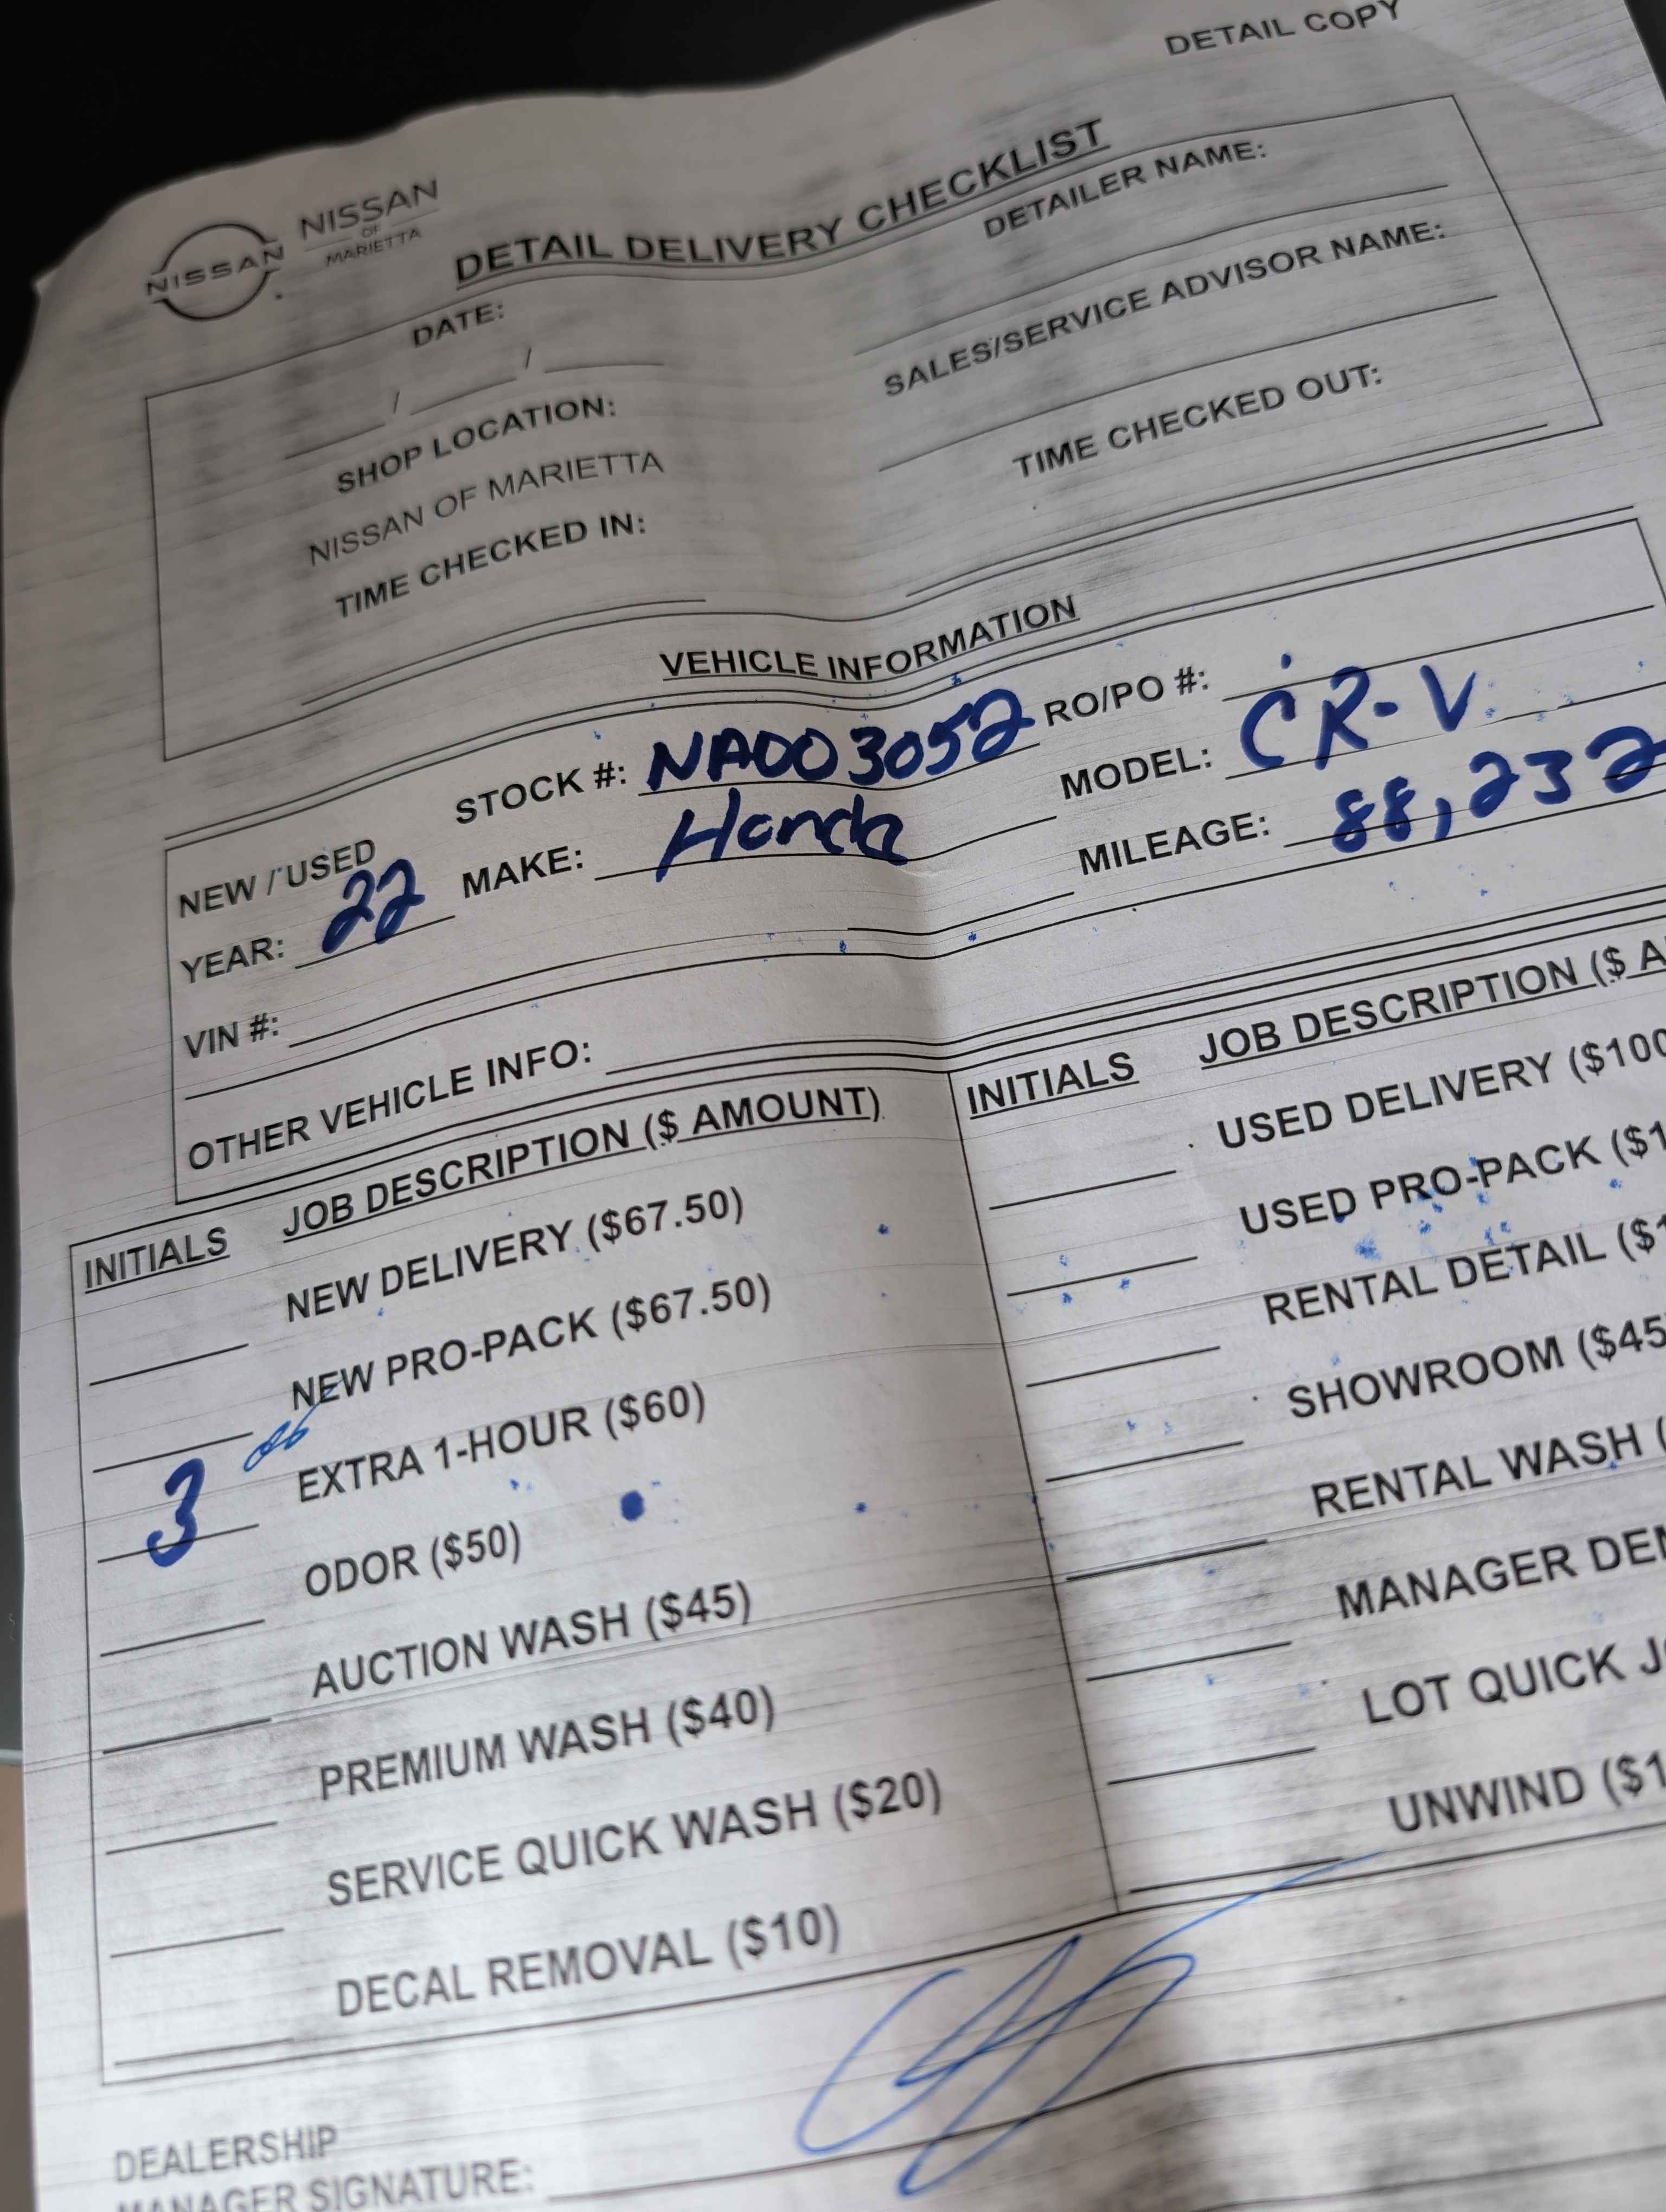 DETAIL COPY
NISSAN
NISSAN
OF
MARIETTA
DETAIL DELIVERY CHECKLIST
DATE:
/ /
DETAILER NAME:
SHOP LOCATION:
NISSAN OF MARIETTA
SALES/SERVICE ADVISOR NAME:
TIME CHECKED IN:
TIME CHECKED OUT:
VEHICLE INFORMATION
NEW / USED STOCK #: NA003052 RO/PO #:
YEAR: 22 MAKE: Honda MODEL: CR-V
VIN #: MILEAGE: 88,232
OTHER VEHICLE INFO:
INITIALS JOB DESCRIPTION ($ AMOUNT)
NEW DELIVERY ($67.50)
NEW PRO-PACK ($67.50)
3 EXTRA 1-HOUR ($60)
ODOR ($50)
AUCTION WASH ($45)
PREMIUM WASH ($40)
SERVICE QUICK WASH ($20)
DECAL REMOVAL ($10)
INITIALS JOB DESCRIPTION ($ A
USED DELIVERY ($100
USED PRO-PACK ($1
RENTAL DETAIL ($1
SHOWROOM ($45
RENTAL WASH (
MANAGER DEM
LOT QUICK J
UNWIND ($1
DEALERSHIP
MANAGER SIGNATURE: